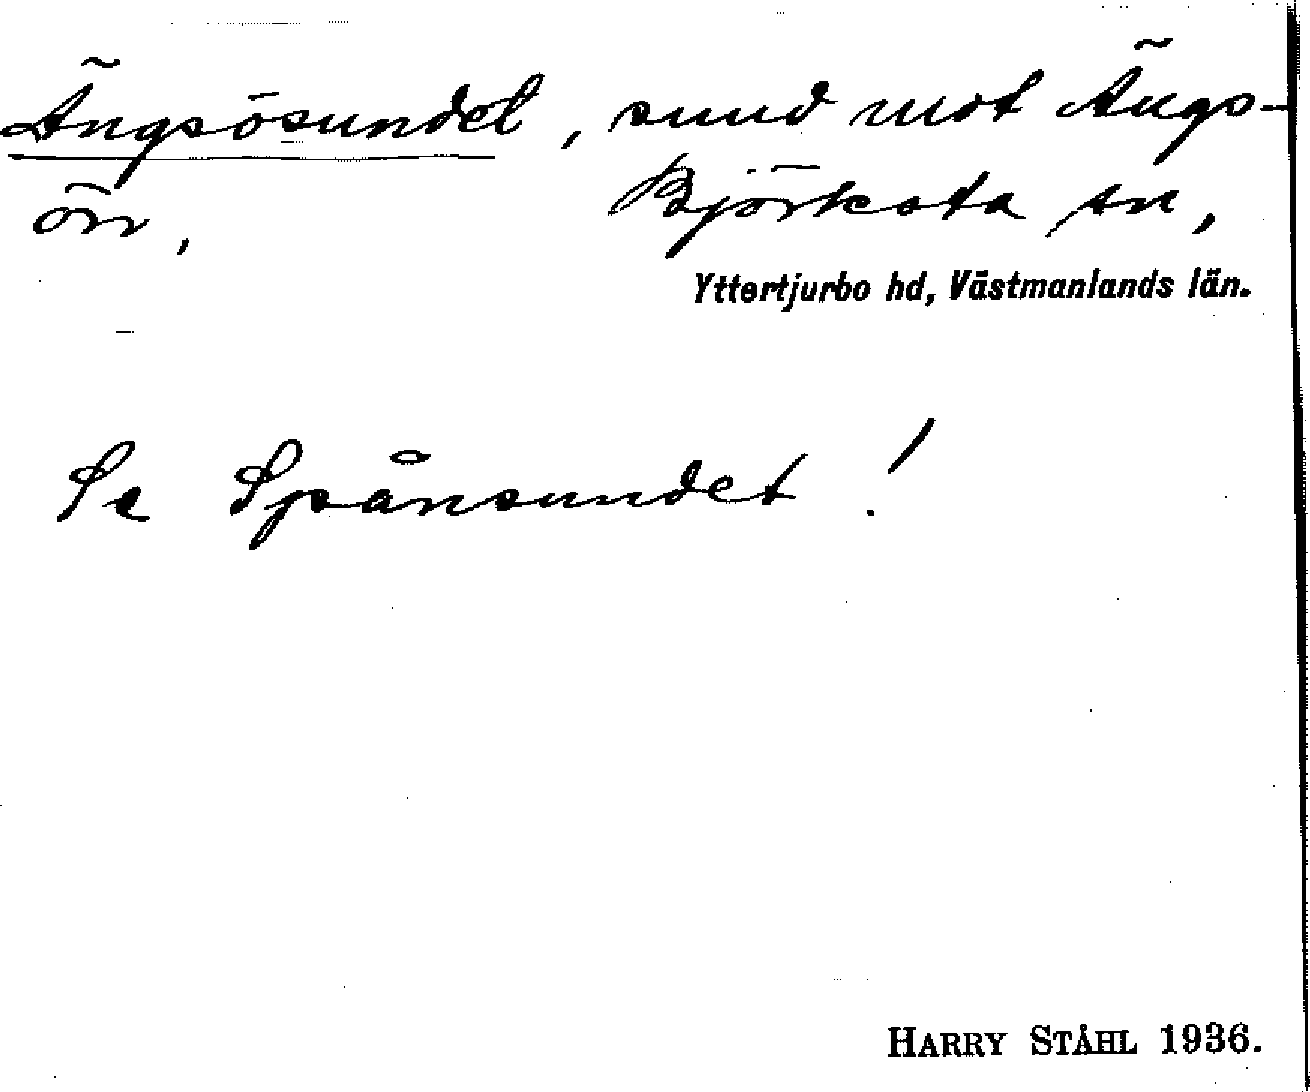 Ängsösundet, sund mot Ängs-
ön, Björksta sn,
Yttertjurbo hd, Västmanlands län.
Se Spånsundet!
HARRY STÅHL 1936.